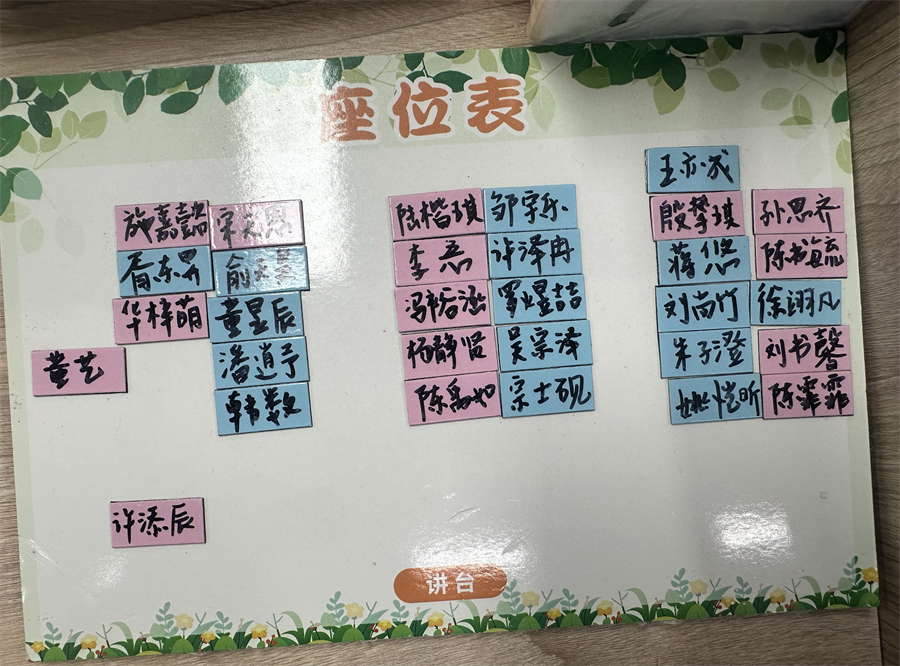 座位表
王亦成
施嘉懿 宋 恩 陆楷琪 邹宇乐 殷梦琪 孙思齐
胥东昇 俞 昊 李 许泽冉 蒋悠 陈书毓
华梓萌 董昱辰 冯梓涵 罗煜喆 刘尚竹 徐翊凡
董艺 潘逍予 杨静贤 吴宗泽 朱子澄 刘书馨
韩数 陈禹如 宗士砚 姚恺昕 陈霏霏
许添辰
讲台